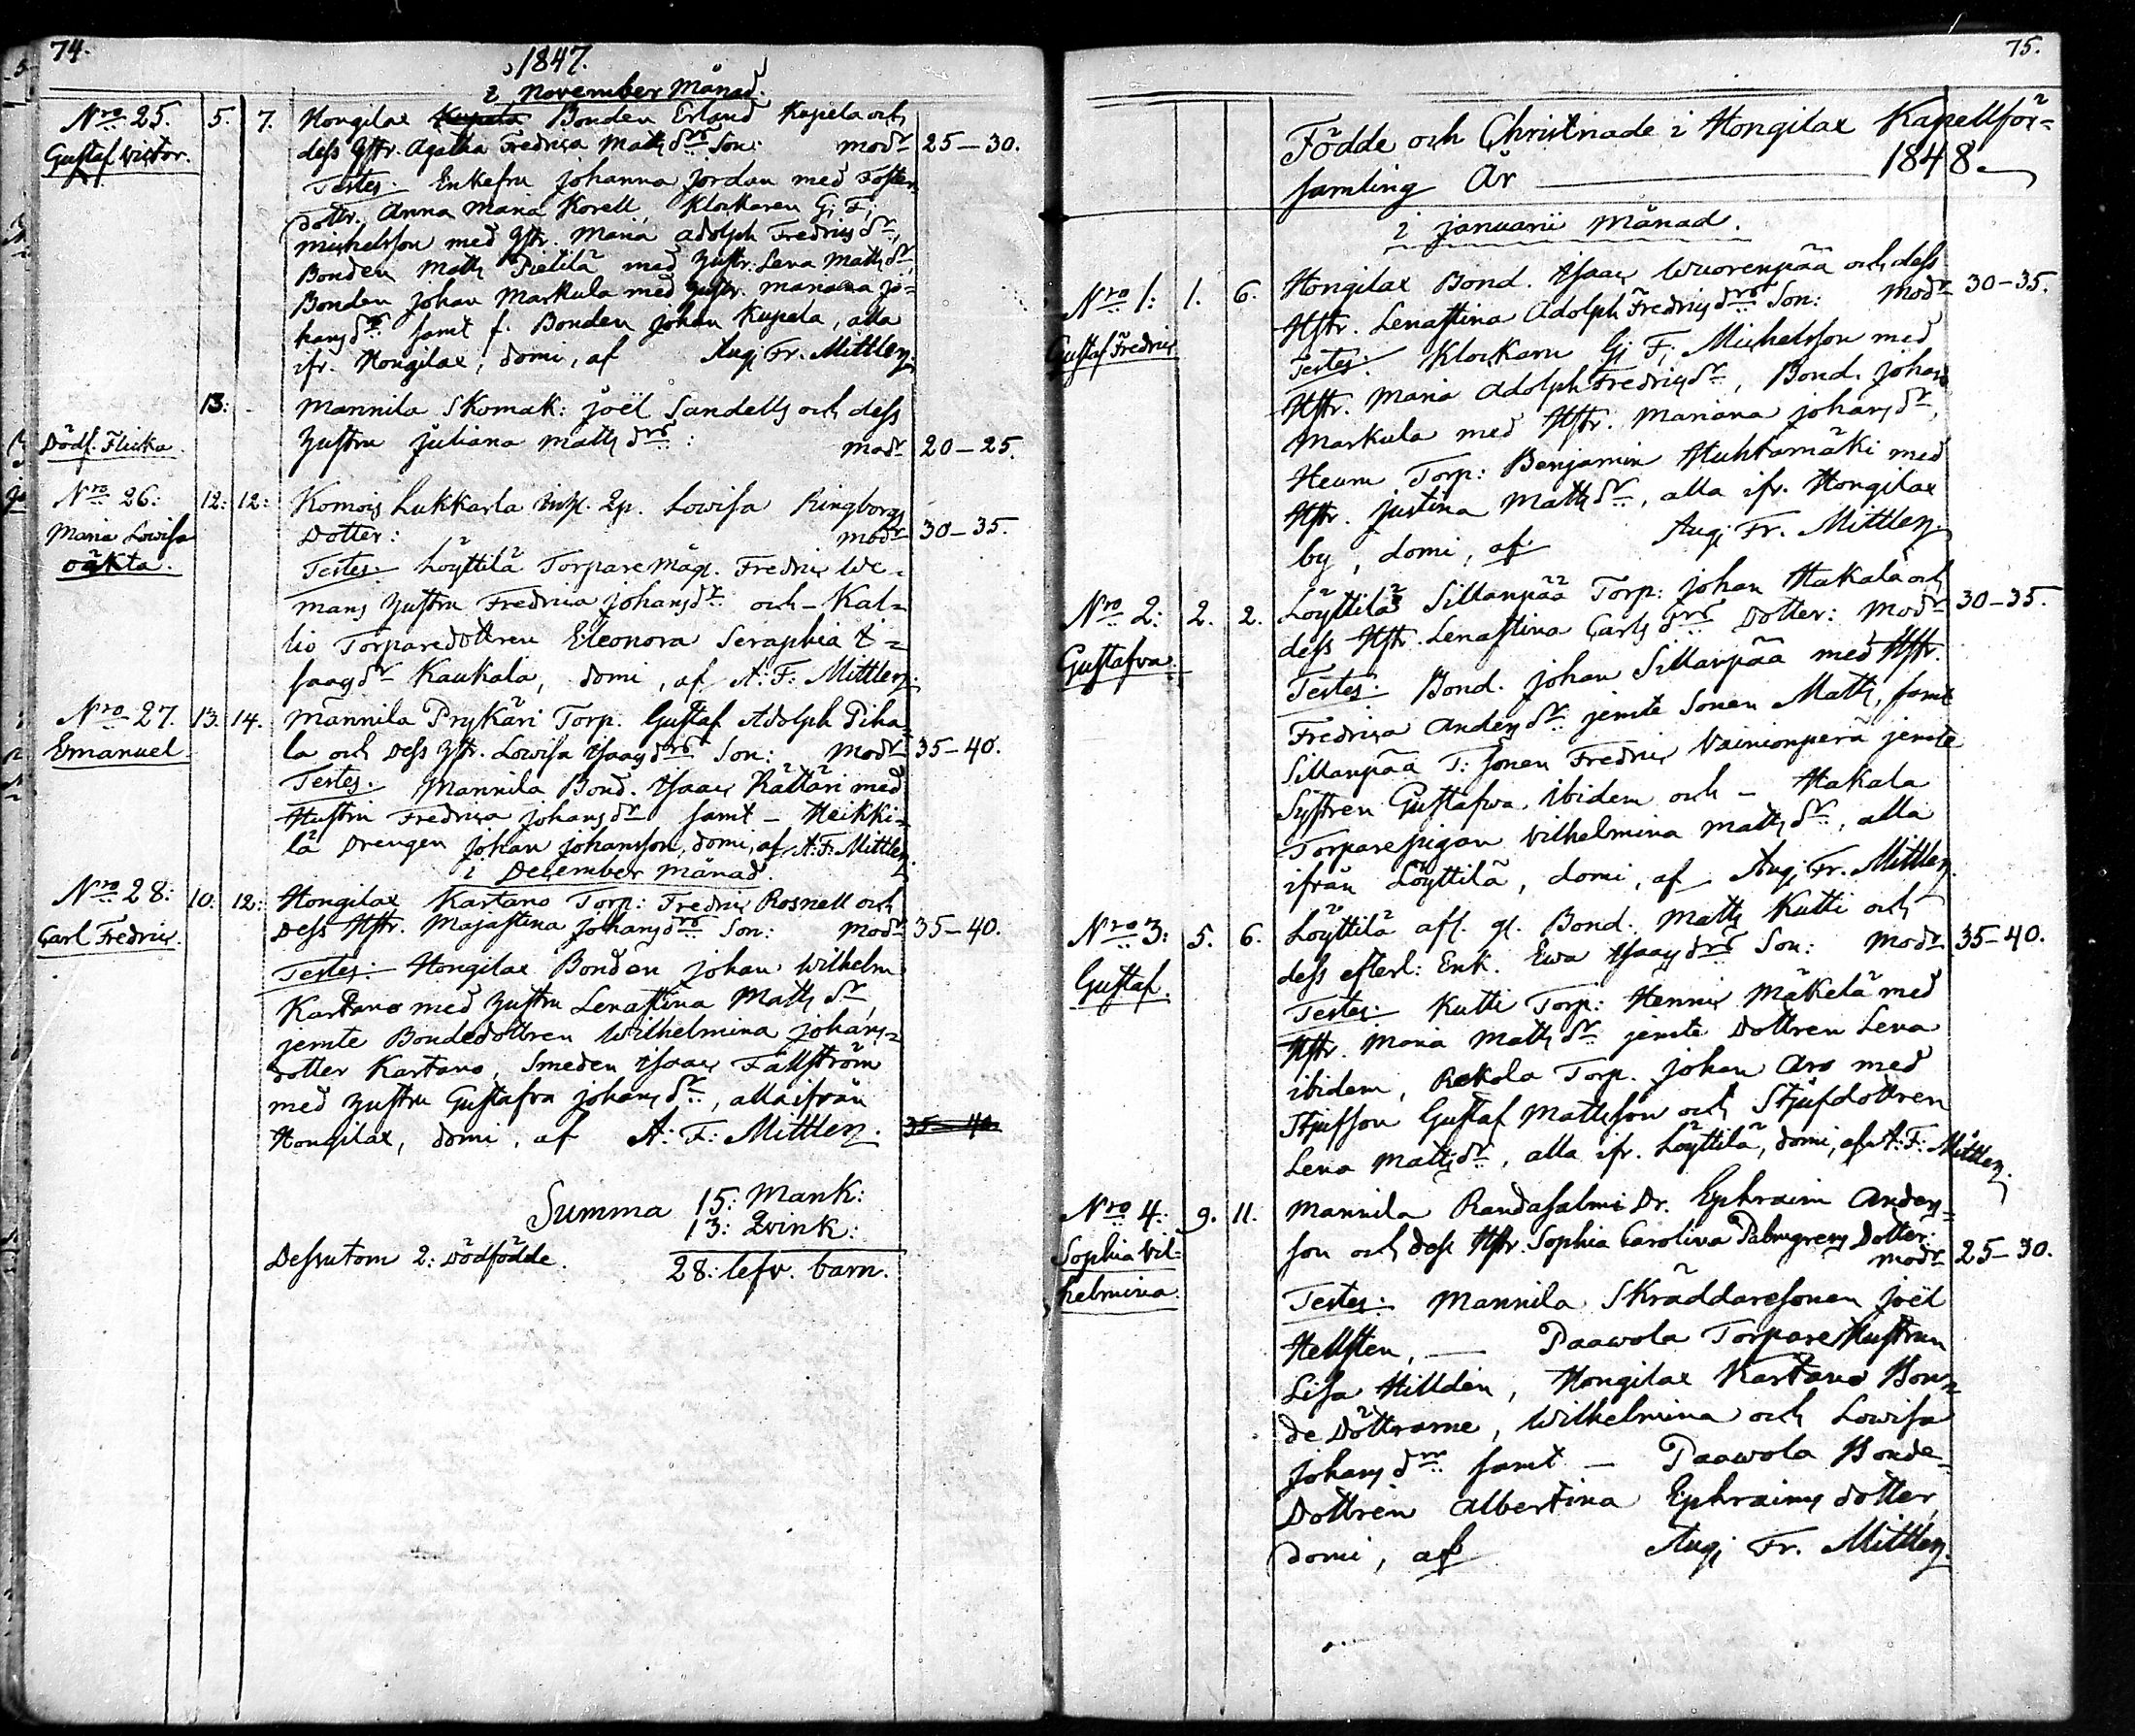 74.
1847.
i November Månad.
Nro 25. 5. 7. Hongilax Kupela Bonden Erland Kupela och
Gustaf Victor. dess Hstr. Agatha Fredrica Matts drs Son: modr 25–30.
Testes: Enkefru Johanna Jordan med Foster
dottr. Anna Maria Korell, Klockaren G: F:
Michelsson med Hstr. Maria Adolph Fredrics dr,
Bonden Matts Pietilä med Hustr. Lena Matts dr,
Bonden Johan Markula med Hustr. Mariana Jo=
hans dr samt f. Bonden Johan Kupela, alla
ifr. Hongilax, domi, af Aug: Fr. Mittler.
13: Mannila Skomak: Joël Sandells och dess
Dödf. Flicka. Hustru Juliana Matts drs: modr 20–25.
Nro 26: 12: 12: Komois Lukkarla Inh. Qp. Lowisa Ringborgs
Maria Lowisa Dotter: modr 30–35.
oäkta. Testes Löyttilä Torpare Måg. Fredric We=
mans Hustru Fredrica Johans dr och – Kal=
lio Torparedottren Eleonora Seraphia I=
saacs dr Kaukala, domi, af A: F: Mittler.
Nro 27. 13. 14. Mannila Prykäri Torp. Gustaf Adolph Piha=
Emanuel. la och Dess Hstr. Lowisa Isaacs drs Son: Modr 35–40.
Testes. Mannila Bond. Isaac Rättäri med
Hustru Fredrica Johans dr samt – Heikki=
lä Drengen Johan Johansson, domi, af A: F: Mittler.
i December månad.
Nro 28: 10. 12: Hongilax Kartano Torp: Fredric Rosnell och
Carl Fredric. Dess Hstr. Majastina Johans drs Son: Modr 35–40.
Testes: Hongilax Bonden Johan Wilhelm
Kartano med Hustru Lenastina Matts dr,
jemte Bondedottren Wilhelmina Johans=
dotter Kartano, Smeden Isaac Fällström
med Hustru Gustafva Johans dr, alla ifrån
Hongilax, domi, af A: F: Mittler. 35–40
Summa 15: Mank:
13: Qvink:
Dessutom 2: Dödfödde. 28: lefv. barn.
75.
Födde och Christnade i Hongilax Kapellför=
samling År 1848.
i Januarii månad.
Nro 1: 1. 6. Hongilax Bond. Isaac Wuorenpää och dess
Gustaf Fredric Hstr. Lenastina Adolph Fredrics drs Son: Modr 30–35.
Testes: Klockarn G: F: Michelsson med
Hstr. Maria Adolph Fredrics dr, Bond. Johan
Markula med Hstr. Mariana Johans dr,
Heurn Torp: Benjamin Huhtamäki med
Hstr. Justina Matts dr, alla ifr. Hongilax
by, domi, af Aug: Fr. Mittler.
Nro 2: 2. 2. Löyttilä Sillanpää Torp: Johan Hakala och
Gustafva. dess Hstr. Lenastina Carls drs Dotter: Modr 30–35.
Testes: Bond. Johan Sillanpää med Hstr.
Fredrica Anders dr jemte Sonen Matts, samt
Sillanpää T: Sonen Fredric Vainionperä jemte
Systren Gustafwa ibidem och – Hakala
Torparepigan Vilhelmina Matts dr, alla
ifrån Löyttilä, domi, af Aug: Fr. Mittler.
Nro 3: 5. 6. Löyttilä afl. gl. Bond. Matts Kutti och
Gustaf. dess efterl: Enk. Ewa Isaacs drs Son: Modr 35–40.
Testes: Kutti Torp: Henric Mäkelä med
Hstr. Maria Matts dr jemte Dottren Lena
ibidem, Rekola Torp. Johan Aro med
Stjufson Gustaf Mattsson och Stjufdottren
Lena Matts dr, alla ifr. Löyttilä, domi, af A: F: Mittler.
Nro 4: 9. 11. Mannila Randasalmi Dr. Ephraim Anders=
Sophia Vil= son och dess Hstr. Sophia Carolina Palmgrens Dotter:
helmina. modr 25–30.
Testes: Mannila Skräddaresonen Joël
Hellsten, — Paawola Torpare Hustrun
Lisa Hilldén, Hongilax Kartano Bon=
de Döttrarne, Wilhelmina och Lowisa
Johans drr samt – Paawola Bonde=
Dottren Albertina Ephraims dotter,
domi, af Aug: Fr. Mittler.